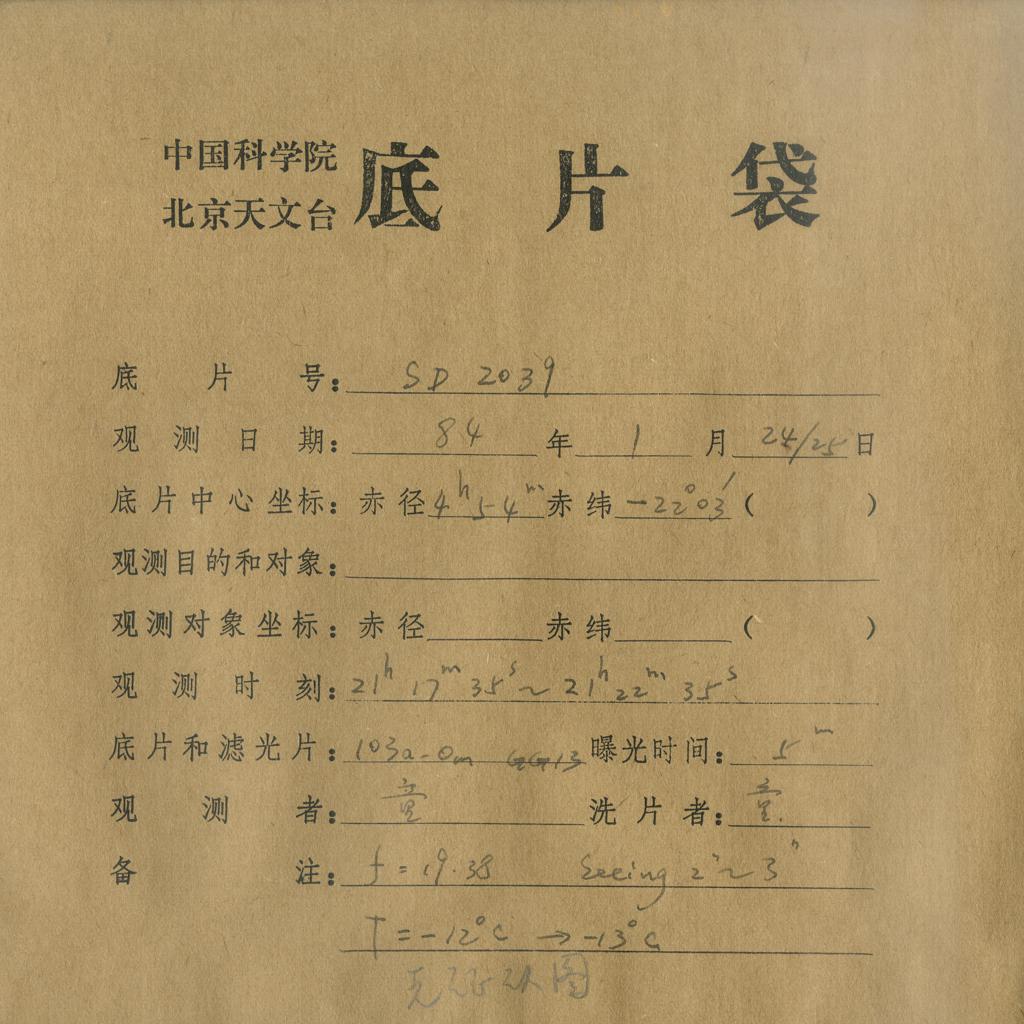 中国科学院
北京天文台
底片袋
底片号: SD 2039
观测日期: 84年1月24/25日
底片中心坐标: 赤径4h54m赤纬-22°03′( )
观测目的和对象:
观测对象坐标: 赤径 赤纬 ( )
观测时刻: 21h 17m 35s ~ 21h 22m 35s
底片和滤光片: 103a-O GG13 曝光时间: 5m
观测者: 童 洗片者: 童
备注: f = 19.38 Seeing 2″~3″
T = -12°C → -13°C